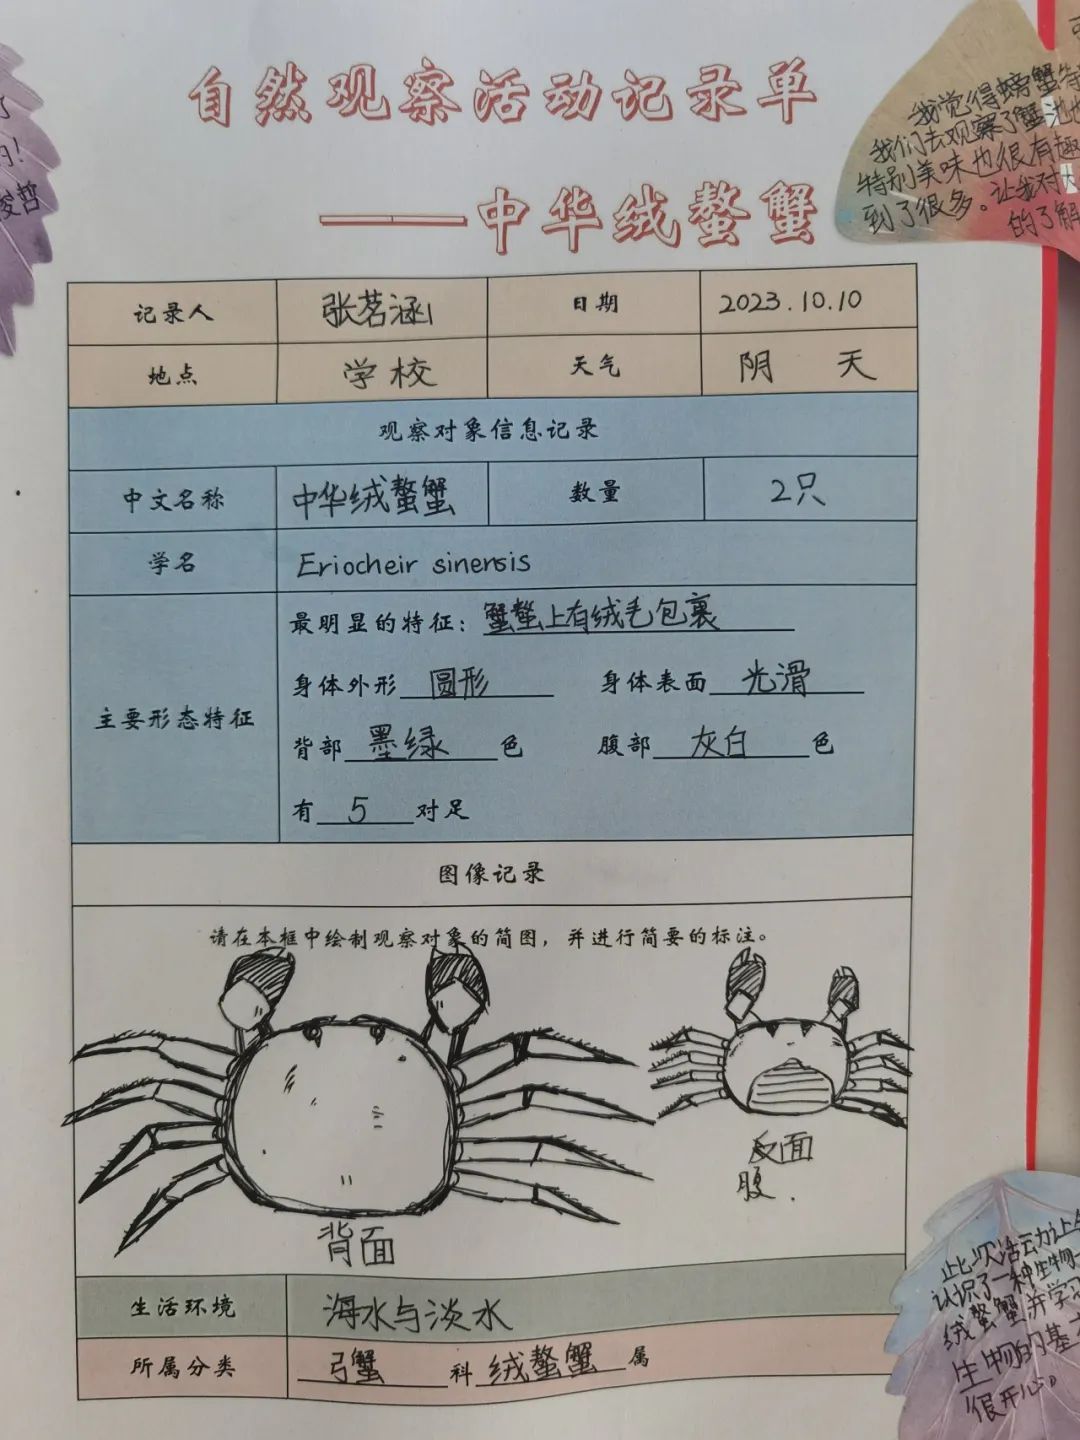 自然观察活动记录单
——中华绒螯蟹
记录人 张茗涵 日期 2023.10.10
地点 学校 天气 阴 天
观察对象信息记录
中文名称 中华绒螯蟹 数量 2只
学名 Eriocheir sinensis
主要形态特征
最明显的特征：蟹螯上有绒毛包裹
身体外形 圆形 身体表面 光滑
背部 墨绿 色 腹部 灰白 色
有 5 对足
图像记录
请在本框中绘制观察对象的简图，并进行简要的标注。
背面
反面
腹.
生活环境 海水与淡水
所属分类 弓蟹 科 绒螯蟹 属
我觉得螃蟹特
我们去观察了蟹池
特别美味也很有趣
到了很多。让我对大
的了解
俊哲
此次活动让
认识了一种生物
绒螯蟹并学习
生物的基
很开心。